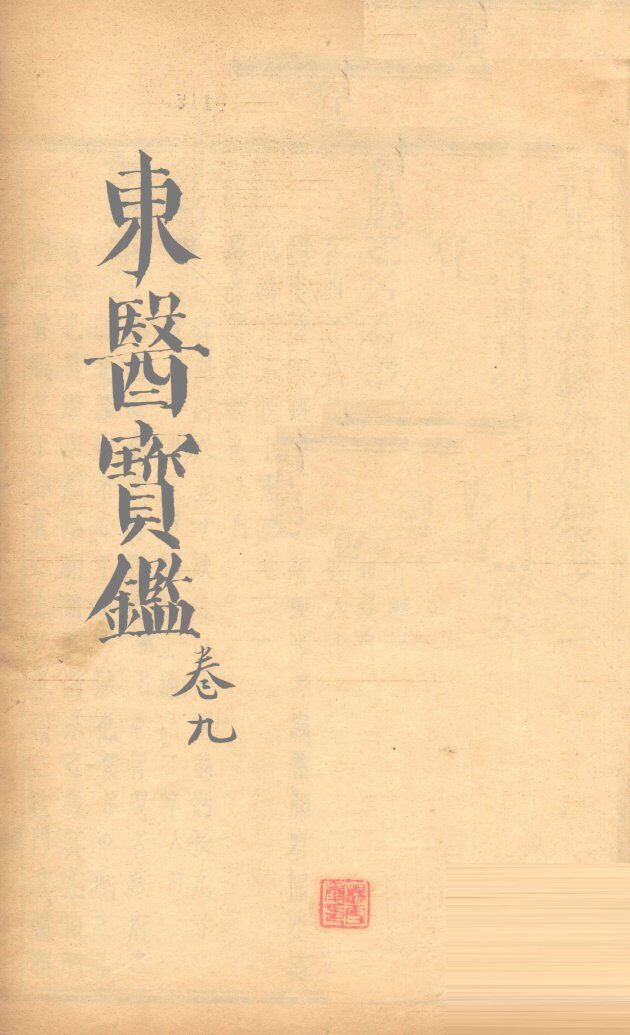 東醫寳鑑
卷九